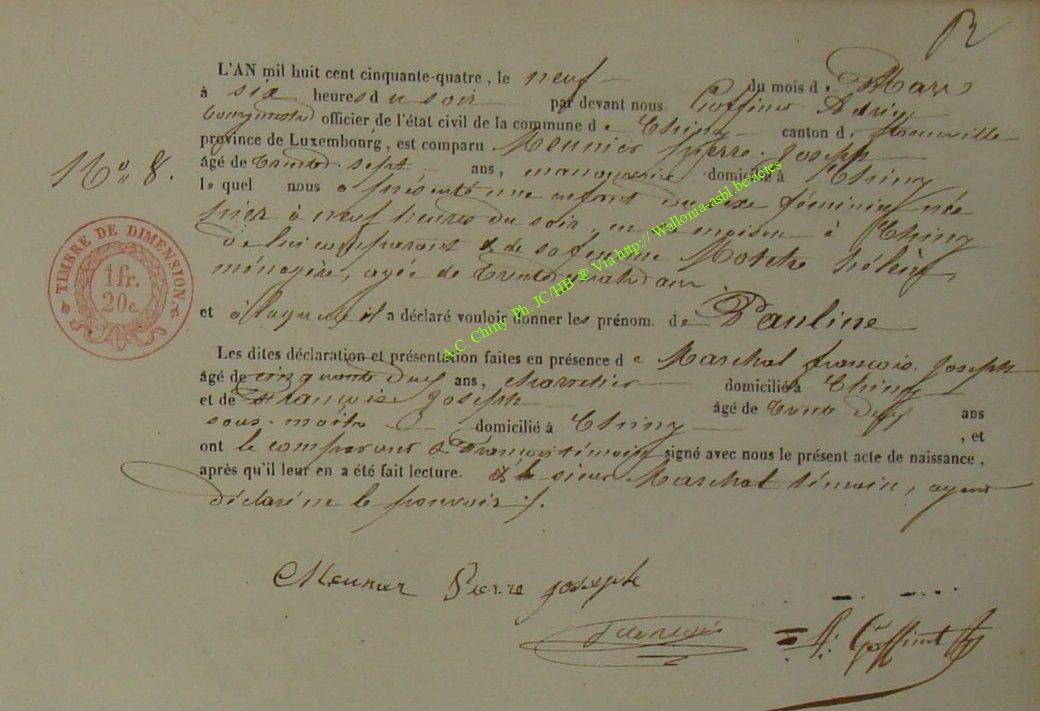 R
L'AN mil huit cent cinquante-quatre, le neuf du mois de Mars
à six heures du soir par devant nous Goffinet Adrien
bourgmestre officier de l'état civil de la commune de Chiny canton de florenville
province de Luxembourg, est comparu Meunier pierre-Joseph
âgé de trente sept ans, manouvrier domicilié à Chiny
lequel nous a présenté une enfant du sexe féminin née
hier à neuf heures du soir, en maison à Chiny
de lui comparant & de sa femme hélène,
ménagère, agée de trente ans
et à laquelle il a déclaré vouloir donner les prénom. de Pauline
Les dites déclaration et présentation faites en présence de Marchal françois Joseph
âgé de cinquante deux ans, charretier domicilié à Chiny
et de François Joseph âgé de trente deux ans
domicilié à Chiny , et
ont le comparant & François témoin signé avec nous le présent acte de naissance,
après qu'il leur en a été fait lecture. & le sieur Marchal témoin, ayant
déclaré ne le pouvoir ./.
No 8.
TIMBRE DE DIMENSION.
1 fr.
20 c.
A.C. Chiny Ph. JC/HB ® Via http:// Wallonia-asbl.be.actes
Meunier Pierre joseph
A. Goffinet